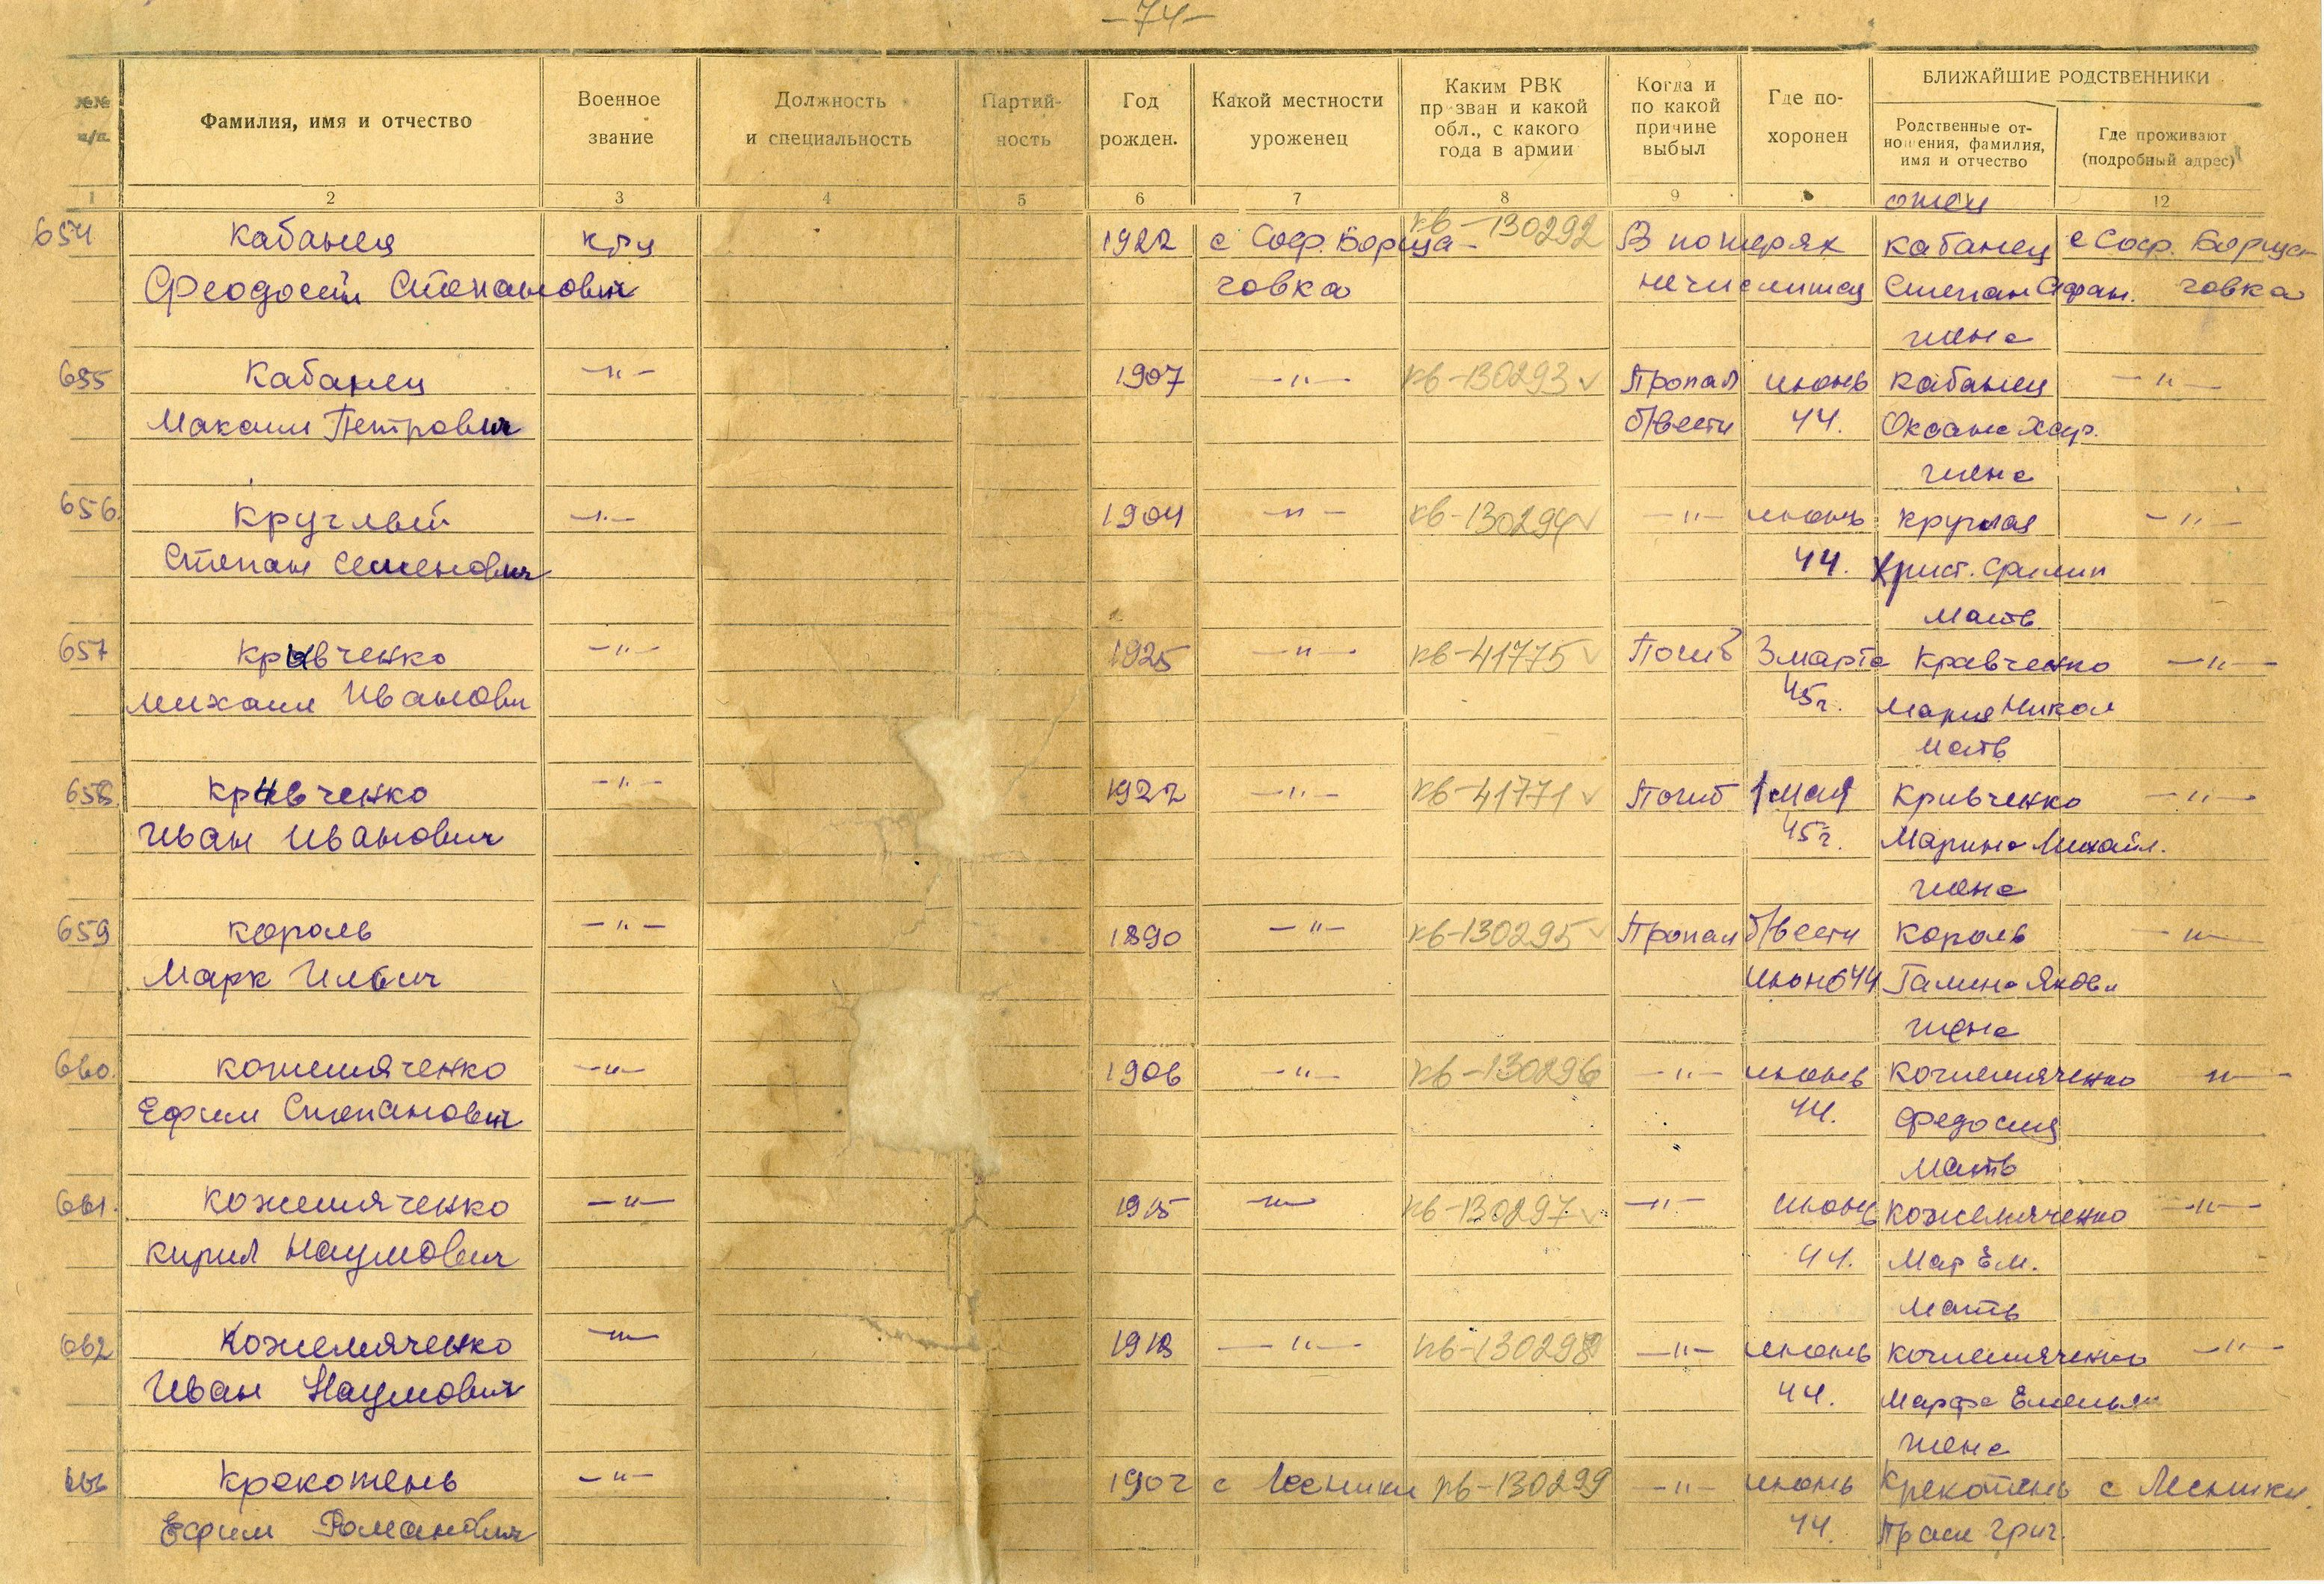 —74—
№№ п/п.
Фамилия, имя и отчество
Военное звание
Должность и специальность
Партий-ность
Год рожден.
Какой местности уроженец
Каким РВК пр зван и какой обл., с какого года в армии
Когда и по какой причине выбыл
Где по-хоронен
БЛИЖАЙШИЕ РОДСТВЕННИКИ
Родственные от-ношения, фамилия, имя и отчество
Где проживают (подробный адрес)
1 2 3 4 5 6 7 8 9 12
отец
654 Кабанец кр-ц 1922 с Соф. Борща- кв-130292 В потерях Кабанец с Соф. Борща-
Феодосий Степанович говка не числится Степан Афан. говка
жена
655 Кабанец —"— 1907 —"— кв-130293 ✓ Пропал июнь Кабанец —"—
Максим Петрович б/вести 44. Оксана Хар.
жена
656. Круглый —"— 1904 —"— кв-130294 ✓ —"— июнь Круглая —"—
Степан Семенович 44. Христ. Филип
мать
657 Кривченко —"— 1925 —"— кв-41775 ✓ Погиб 3 марта Кравченко —"—
Михаил Иванови 45г. Мария Никол
мать
658 Кривченко —"— 1922 —"— кв-41771 ✓ Погиб 1 мая Кривченко —"—
Иван Иванович 45г. Марина Михайл.
жена
659 Король —"— 1890 —"— кв-130295 ✓ Пропал б/вести Король —"—
Марк Ильич июнь 44 Галина Яковл
жена
660. Кожемяченко —"— 1906 —"— кв-130296 —"— июнь Кожемяченко —"—
Ефим Степанович 44. Федосия
мать
661. Кожемяченко —"— 1915 —"— кв-130297 ✓ —"— июнь Кожемяченко —"—
Кирил Наумович 44. Мар Ем.
мать
662 Кожемяченко —"— 1918 —"— кв-130298 —"— июнь Кожемяченко —"—
Иван Наумович 44. Марфа Емельян
жена
663 Крекотень —"— 1902 с Лесники кв-130299 —"— июнь Крекотень с Лесники.
Ефим Романович 44. Праск Григ.